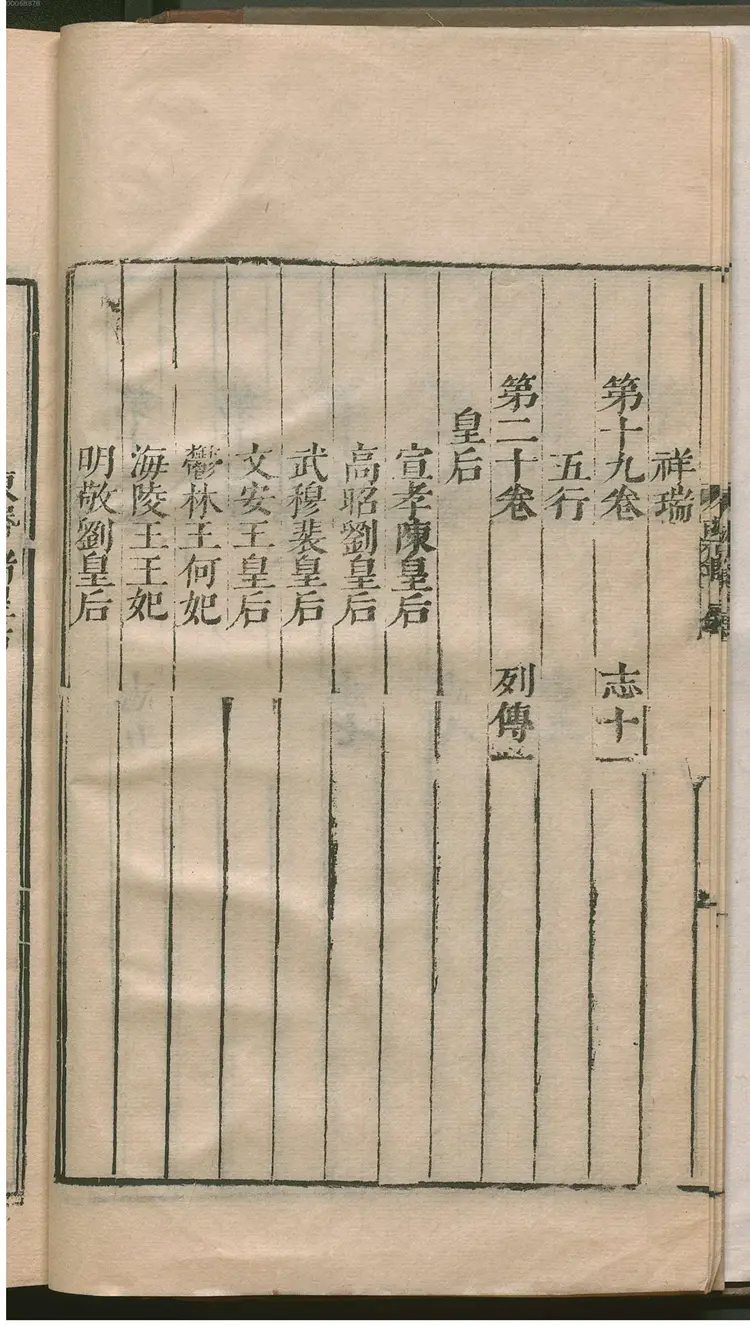 00068378
祥瑞
第十九卷 志十一
五行
第二十卷 列傳一
皇后
宣孝陳皇后
高昭劉皇后
武穆裴皇后
文安王皇后
鬱林王何妃
海陵王王妃
明敬劉皇后